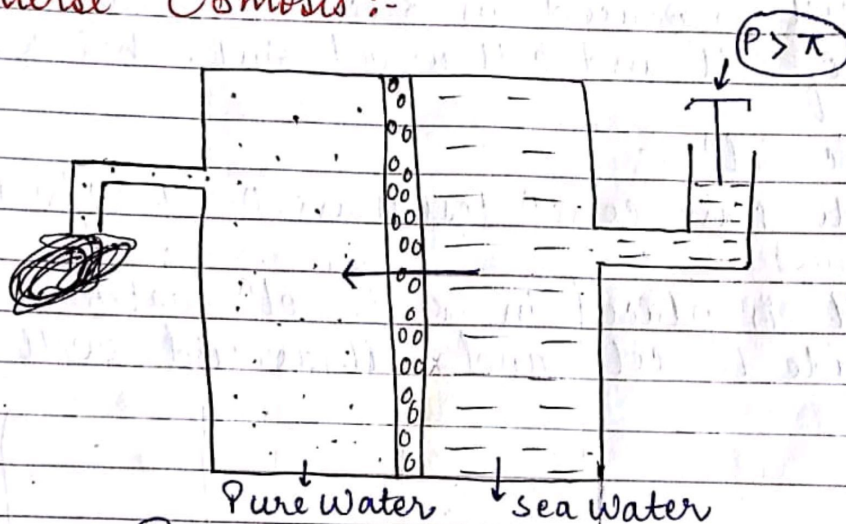 Osmosis:-
P > π
Pure Water
sea water